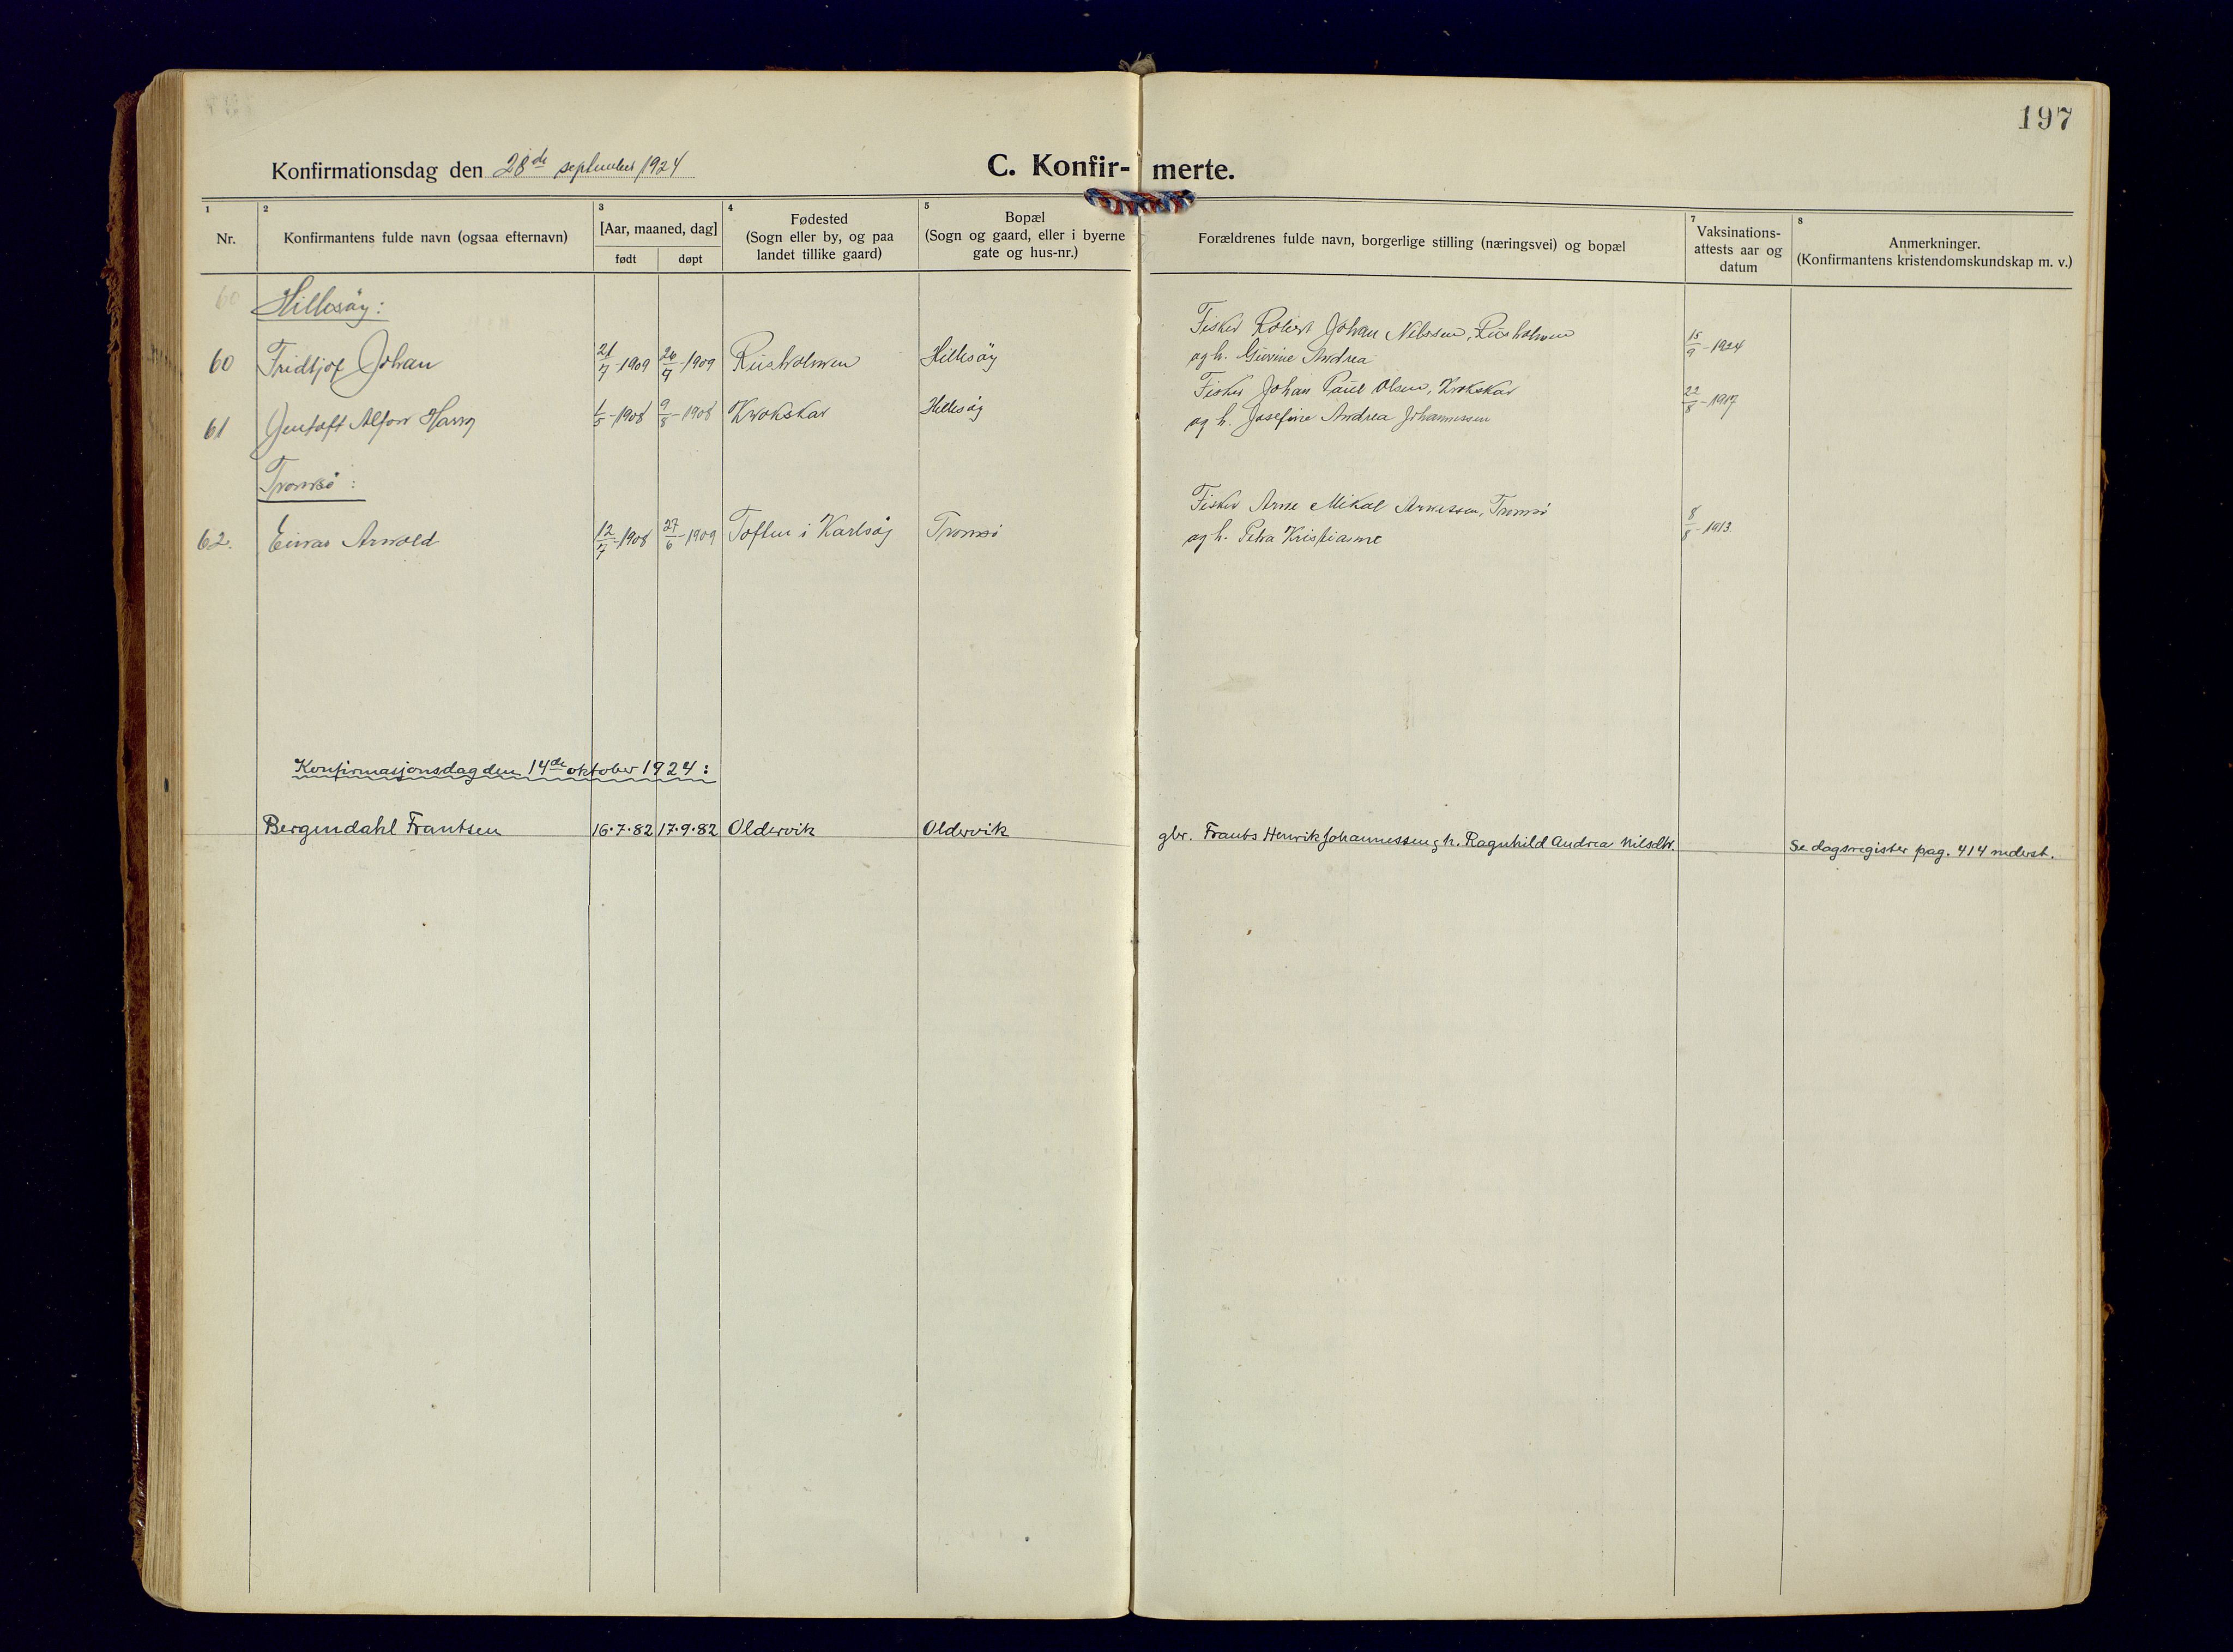 197
Konfirmationsdag den 28de september 1924
C. Konfir- merte.
1 2 3 4 5 7 8
Nr.
Konfirmantens fulde navn (ogsaa efternavn)
[Aar, maaned, dag]
født døpt
Fødested
(Sogn eller by, og paa
landet tillike gaard)
Bopæl
(Sogn og gaard, eller i byerne
gate og hus-nr.)
Forældrenes fulde navn, borgerlige stilling (næringsvei) og bopæl
Vaksinations-
attests aar og
datum
Anmerkninger.
(Konfirmantens kristendomskundskap m. v.)
60 Hillesøy:
Fisker Robert Johan Nilssen, Risholmen
60 Fridtjof Johan 21/7-1909 26/9-1909 Risholmen Hillesøy og h. Andrea 15/9-1924
Fisker Johan Paul Olsen, Krokskar
61 Jentoft Alfon Harry 1/5-1908 9/8-1908 Krokskar Hillesøy og h. Josefine Andrea Johannessen 22/8-1917
Tromsø:
Fisker Arne Mikal Arnessen, Tromsø
62. Einar Arnold 12/7-1908 27/6-1909 Toften i Karlsøy Tromsø og h. Petra Kristianne 8/8-1913
Konfirmasjonsdag den 14de oktober 1924:
Bergendahl Frantsen 16.7.82 17.9.82 Oldervik Oldervik gbr. Frants Henrik Johannessen g h. Ragnhild Andrea Nilsdtr. Se dagsregister pag. 414 nederst.